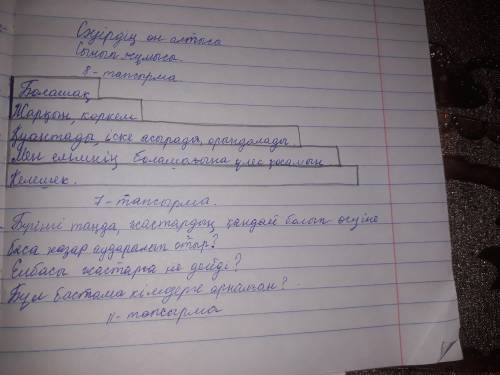 Сәуірдің он алтысы
Сынып жұмысы.
8-тапсырма
Болашақ
Жарқын, көркем
Қуантады, іске асырады, орындалады
Мен елімнің болашағына үлес қосамын
Келешек.
7-тапсырма.
Бүгінгі таңда, жастардың қандай болып өсуіне
баса назар аударылып отыр?
Елбасы жастарға не дейді?
Бұл бастама кімдерге арналған?
11-тапсырма